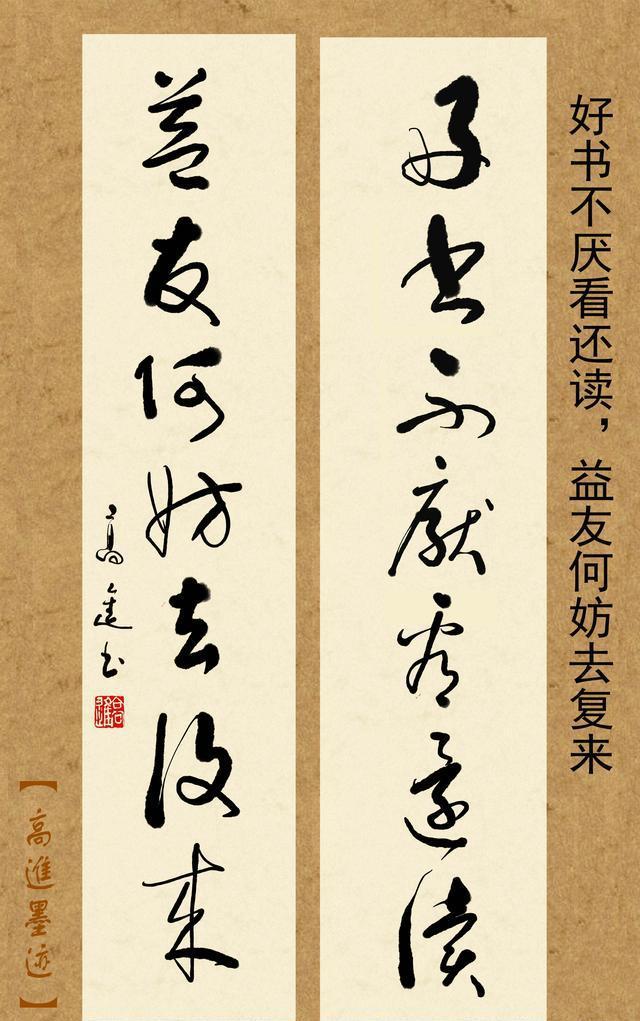 好书不厌看还读，益友何妨去复来
好書不厭看還讀
益友何妨去復來
高進书
【高進墨迹】